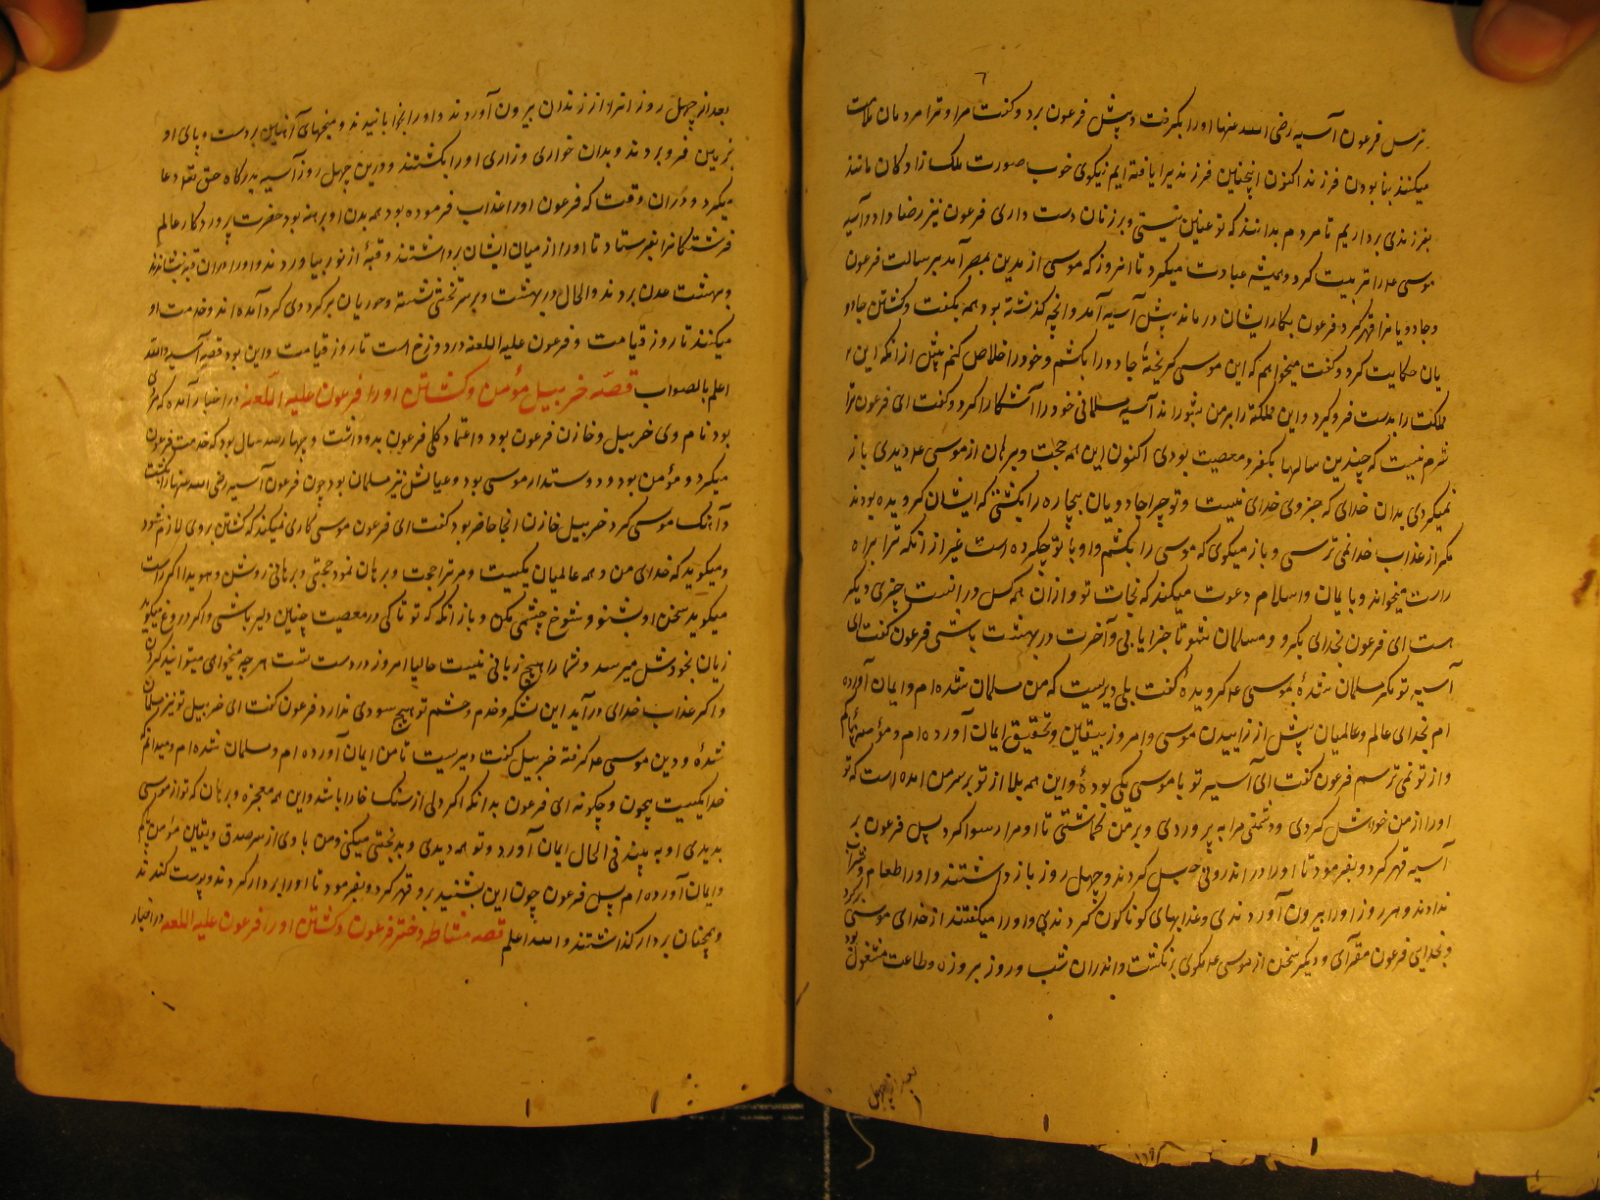 ترس فرعون آسیه رضی الله عنها او را بگرفت و پیش فرعون برد و گفت مرا و ترا مردمان ملامت
میکنند بنابودن فرزند اکنون اینچنین فرزندیرا یافته ایم نیکوی خوب صورت ملک زادکان مانند
بفرزندی برداریم تا مردم بدانند که تو عنین نیستی و بر زنان دست داری فرعون نیز رضا داد و آسیه
موسی ع را تربیت کرد و همیشه عبادت میکرد تا امروز که موسی از مدین بمصر آمد برسالت فرعون
و جادویانرا قهر کرد فرعون بکار ایشان درماند پیش آسیه آمد و آنچه گذشته بود همه بگفت و کشتن جادو
یان حکایت کرد و گفت میخواهم که این موسی گریخته جادو را بکشم و خود را خلاص کنم پیش ازانکه این
مملکت را بدست فرو گیرد و این مملکة را بر من بشوراند آسیه مسلمانی خود را آشکارا کرد و گفت ای فرعون ترا
شرم نیست که چندین سالها بکفر و معصیت بودی اکنون این همه حجت و برهان از موسی ع دیدی باز
نمیگردی بدان خدای که جز وی خدای نیست و تو چرا جادویان بیچاره را بکشتی که ایشان گرویده بودند
مگر از عذاب خدا نمی ترسی و باز میگوی که موسی را بکشم و او با تو چکرده است غیر از آنکه ترا براه
راست میخواند و با ایمان و اسلام دعوت میکند که نجات تو و ازان همه کس درانست چیزی دیگر
هست ای فرعون بخدای بگرو و مسلمان شو تا جزا یابی و آخرت در بهشت باشی فرعون گفت ای
آسیه تو مگر مسلمان شدهٔ بموسی ع گرویدهٔ گفت بلی دیریست که من مسلمان شده ام و ایمان آورده
ام بخدای عالم و عالمیان پیش از زاییدن موسی و امروز بیقین و تحقیق ایمان آورده ام و مؤمنه ام
و از تو نمی ترسم فرعون گفت ای آسیه تو با موسی یکی بودهٔ و این همه بلا از تو بر سر من آمده است که تو
او را از من خواهش کردی و دشمنی مرا به پروردی و بر من گماشتی تا او مرا رسوا کرد پس فرعون بر
آسیه قهر کرد و بفرمود تا او را در اندرونی حبس کردند و چهل روز باز داشتند و او را طعام و شراب
ندادند و هر روز او را بیرون آوردندی و عذابهای گوناگون کردندی و او را میگفتند از خدای موسی برگرد
و بخدایی فرعون مقرآی و دیگر سخن از موسی ع مگوی برنگشت و اندران شب و روز بروزه و طاعت مشغول بود
بعد از چهل
بعد از چهل روز او را از زندان بیرون آوردند و او را بخوابانیدند و میخهای آهنین بر دست و پای او
بزمین فرو بردند و بدان خواری و زاری او را بکشتند و درین چهل روز آسیه بدرگاه حق تعالی دعا
میکرد و دران وقت که فرعون او را عذاب فرموده بود همه بدن او برهنه بود حضرت پروردگار عالم
فرشتگانرا بفرستاد تا او را از میان ایشان برداشتند و قبهٔ از نور بیاوردند و او را دران قبه بنشاندند
و ببهشت عدن بردند و الحال در بهشت و بر سر تختی نشسته و حوریان بر گرد وی گرد آمده اند و خدمت او
میکنند تا روز قیامت و فرعون علیه اللعنه در دوزخ است تا روز قیامت و این بود قصه آسیه والله
اعلم بالصواب قصه خربیل مؤمن و کشتن او را فرعون علیه اللعنه در اخبار آمده که مردی
بود نام وی خربیل و خازن فرعون بود و اعتماد کلی فرعون بدو داشت و چهارصد سال بود که خدمت فرعون
میکرد و مؤمن بود و دوستدار موسی بود و عیالش نیز مسلمان بود چون فرعون آسیه رضی الله عنها را بکشت
و آهنگ موسی کرد خربیل خازن آنجا حاضر بود گفت ای فرعون موسی کاری نمیکند که کشتن بر وی لازم شود
و میگوید که خدای من و همه عالمیان یکیست و مر ترا حجت و برهان نمود حجتی و برهانی روشن و هویدا اگر راست
میگوید سخن او بشنو و شوخ چشمی مکن و باز آنکه که تو تا کی در معصیت چنین دلیر باشی و اگر دروغ میگوید
زیان بخودش میرسد و شما را هیچ زیانی نیست حالیا امروز در دست تست هر چه میخواهی میتوانی کردن
و اگر عذاب خدای درآید این لشکر و خدم و حشم تو هیچ سودی ندارد فرعون گفت ای خربیل تو نیز مسلمان
شدهٔ و دین موسی ع گرفته خربیل گفت دیریست تا من ایمان آورده ام و مسلمان شده ام و میدانم که
خدا یکیست بیچون و چگونه ای فرعون بدانکه اگر دلی از سنک خارا باشد و این همه معجزه و برهان که تو از موسی
بدیدی او به بیند فی الحال ایمان آورد و تو همه دیدی و بدبختی میکنی و من با وی از سر صدق و یقین مؤمن ام
و ایمان آورده ام پس فرعون چون این بشنید برو قهر کرد و بفرمود تا او را بر دار کردند و پوست کندند
و همچنان بر دار گذاشتند والله اعلم قصه مشاطه دختر فرعون و کشتن او را فرعون علیه اللعنه در اخبار